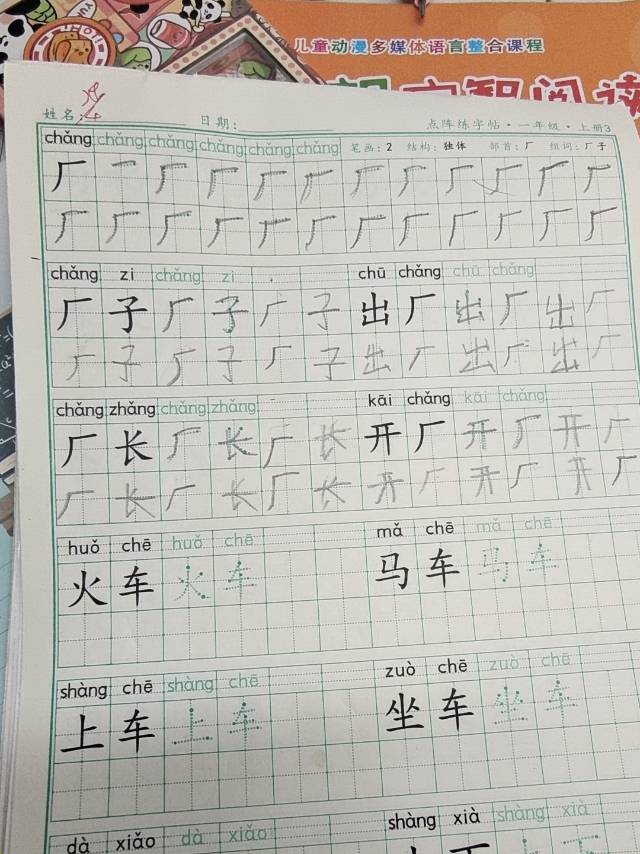 儿童动漫多媒体语言整合课程
阅读
姓名： 日期： 点阵练字帖·一年级·上册3
chǎng chǎng chǎng chǎng chǎng chǎng 笔画：2 结构：独体 部首：厂 组词：厂子
厂 厂 厂 厂 厂 厂 厂 厂 厂 厂 厂
厂 厂 厂 厂 厂 厂 厂 厂 厂 厂 厂 厂
chǎng zi chǎng zi chū chǎng chū chǎng
厂 子 厂 子 厂 子 出 厂 出 厂 出 厂
厂 子 厂 子 厂 子 出 厂 出 厂 出 厂
chǎng zhǎng chǎng zhǎng kāi chǎng kāi chǎng
厂 长 厂 长 厂 长 开 厂 开 厂 开 厂
厂 长 厂 长 厂 长 开 厂 开 厂 开 厂
huǒ chē huǒ chē mǎ chē mǎ chē
火 车 火 车 马 车 马 车
shàng chē shàng chē zuò chē zuò chē
上 车 上 车 坐 车 坐 车
dà xiǎo dà xiǎo shàng xià shàng xià